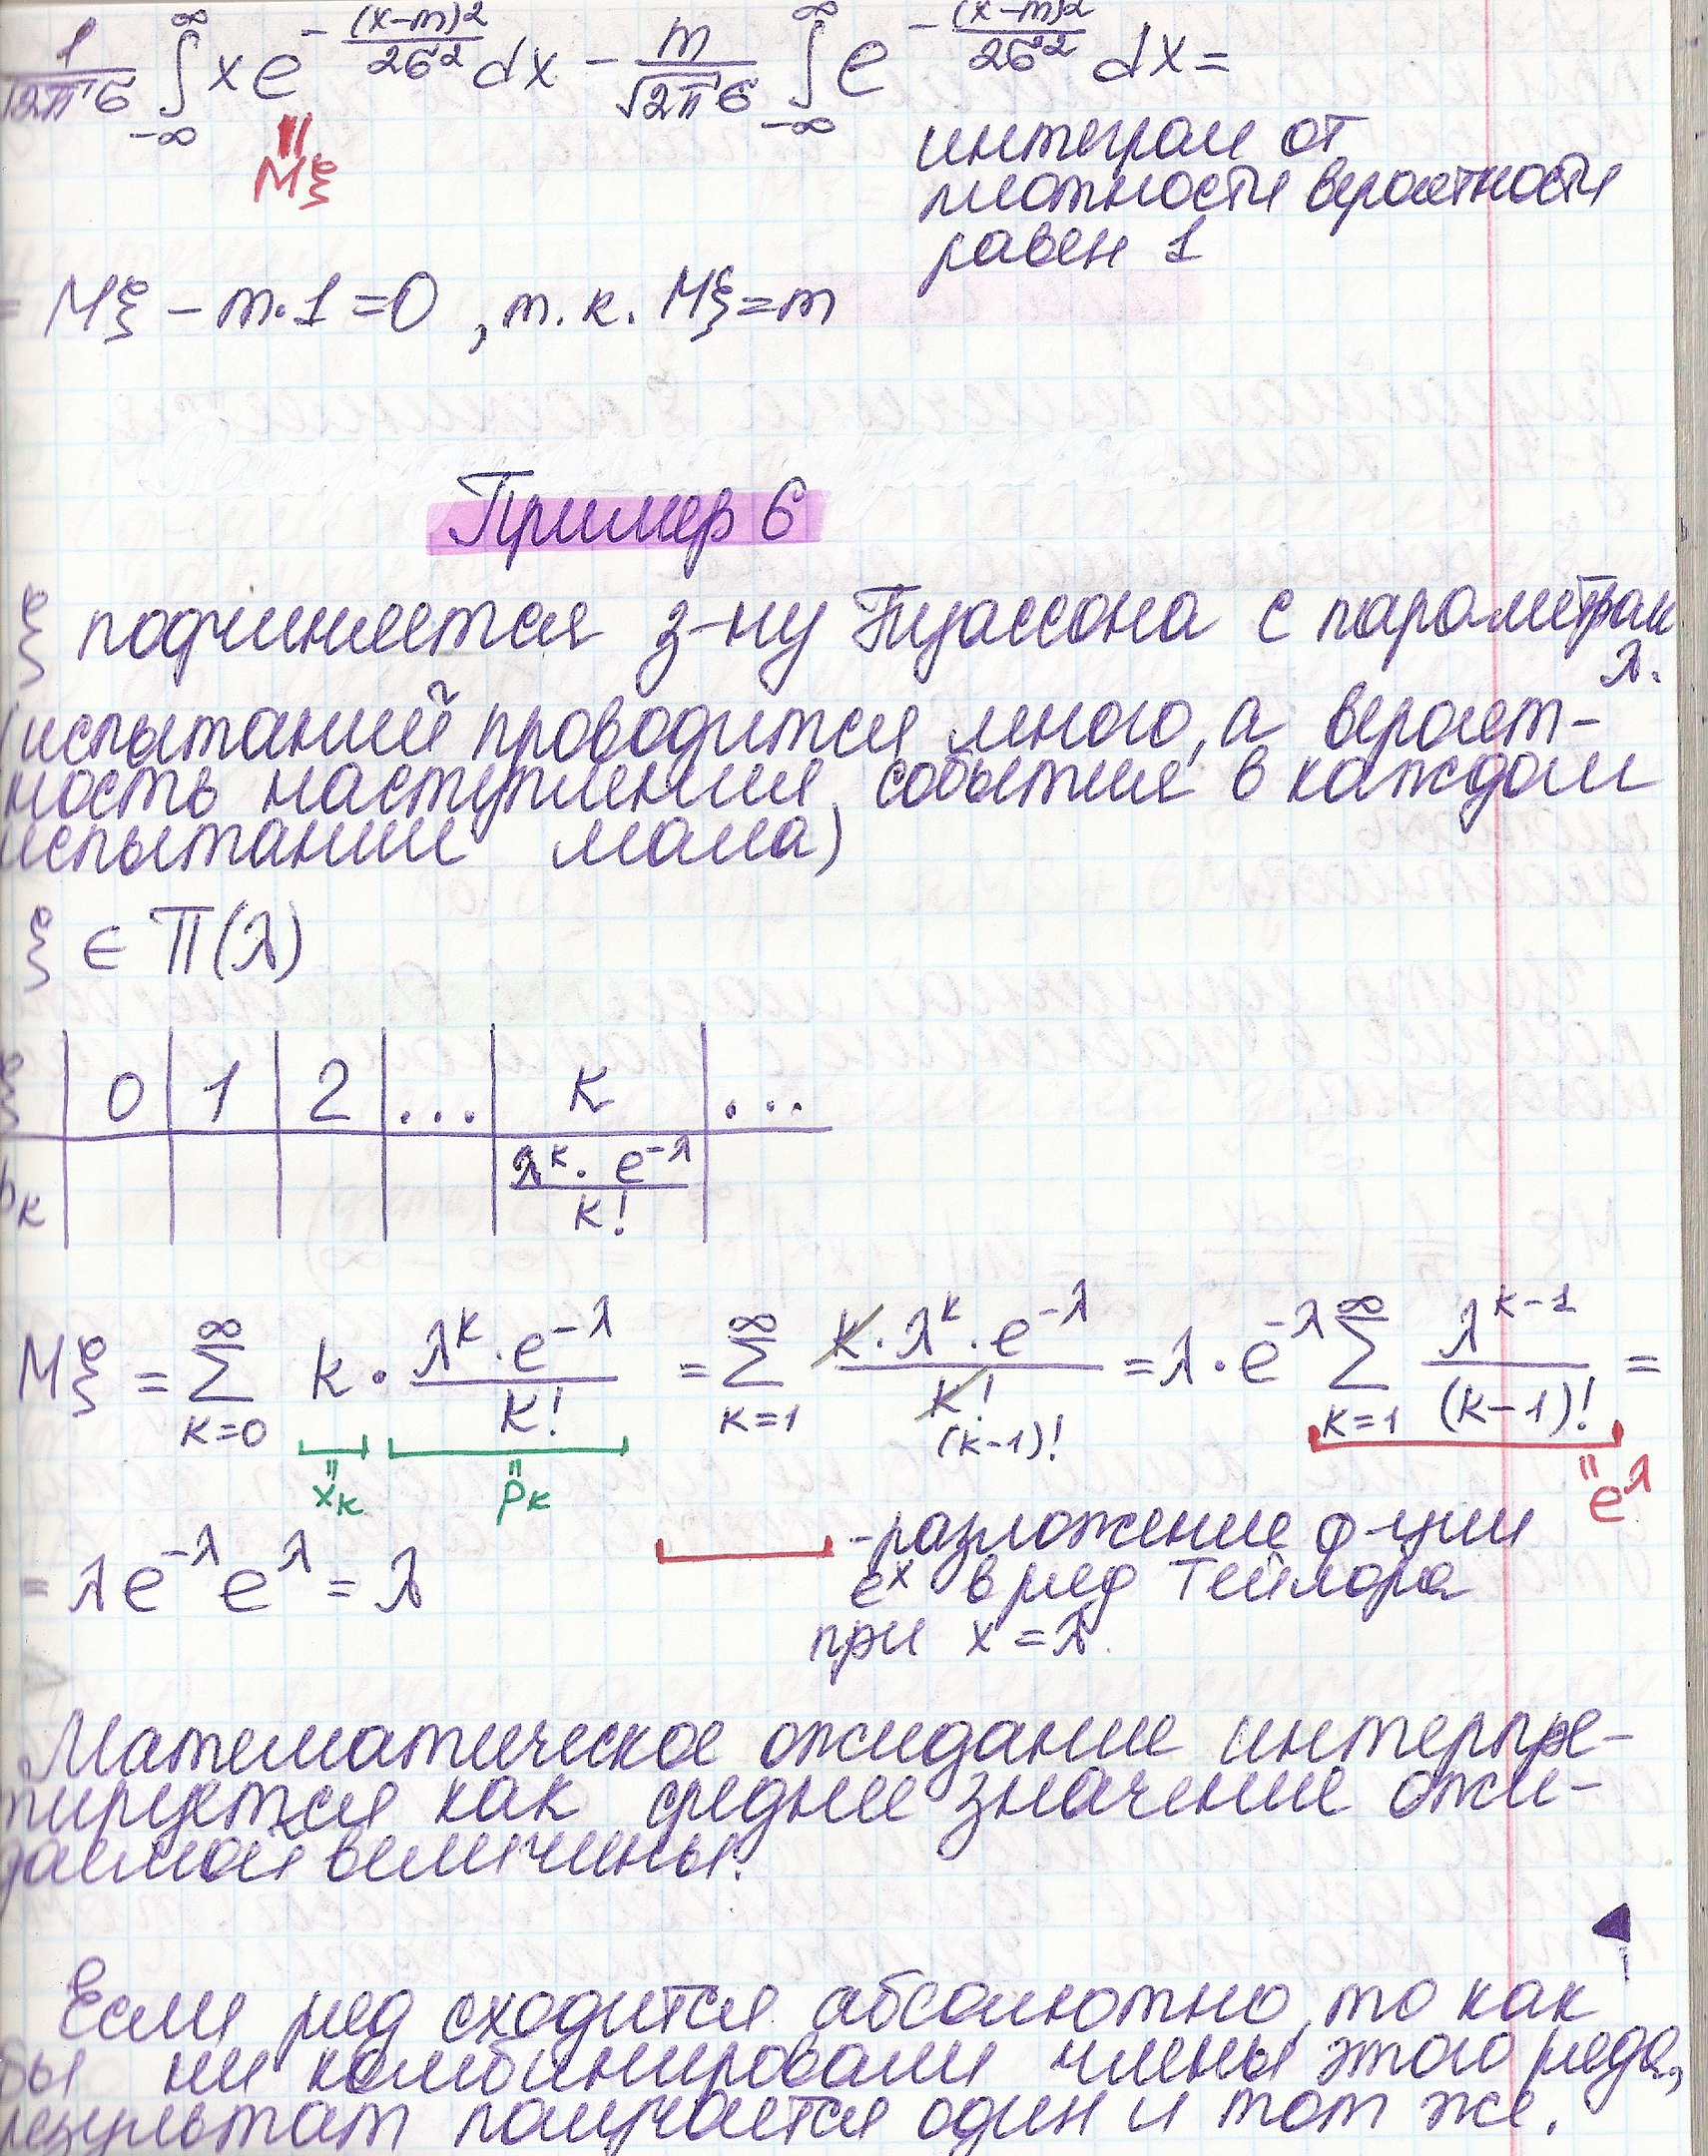 1/(√2π σ) ∫_{-∞}^{∞} x e^{-(x-m)²/2σ²} dx - m/(√2π σ) ∫_{-∞}^{∞} e^{-(x-m)²/2σ²} dx =
|| Mξ
интеграл от
плотности вероятности
равен 1
= Mξ - m·1 = 0, т.к. Mξ = m
Пример 6
ξ подчиняется з-ну Пуассона с параметрам
λ.
(испытаний проводится много, а вероят-
ность наступления события в каждом
испытании мала)
ξ ∈ П(λ)
ξ | 0 | 1 | 2 | ... | k | ...
p_k | | | | | λ^k · e^{-λ} / k! |
Mξ = ∑_{k=0}^{∞} k · λ^k · e^{-λ} / k! = ∑_{k=1}^{∞} k · λ^k · e^{-λ} / k! = λ · e^{-λ} ∑_{k=1}^{∞} λ^{k-1} / (k-1)! =
(k-1)!
" x_k " p_k " e^λ
= λ e^{-λ} e^λ = λ
- разложение ф-ции
e^x в ряд Тейлора
при x = λ.
Математическое ожидание интерпре-
тируется как среднее значение ожи-
даемой величины.
Если ряд сходится абсолютно, то как
бы ни комбинировали члены этого ряда,
результат получается один и тот же.